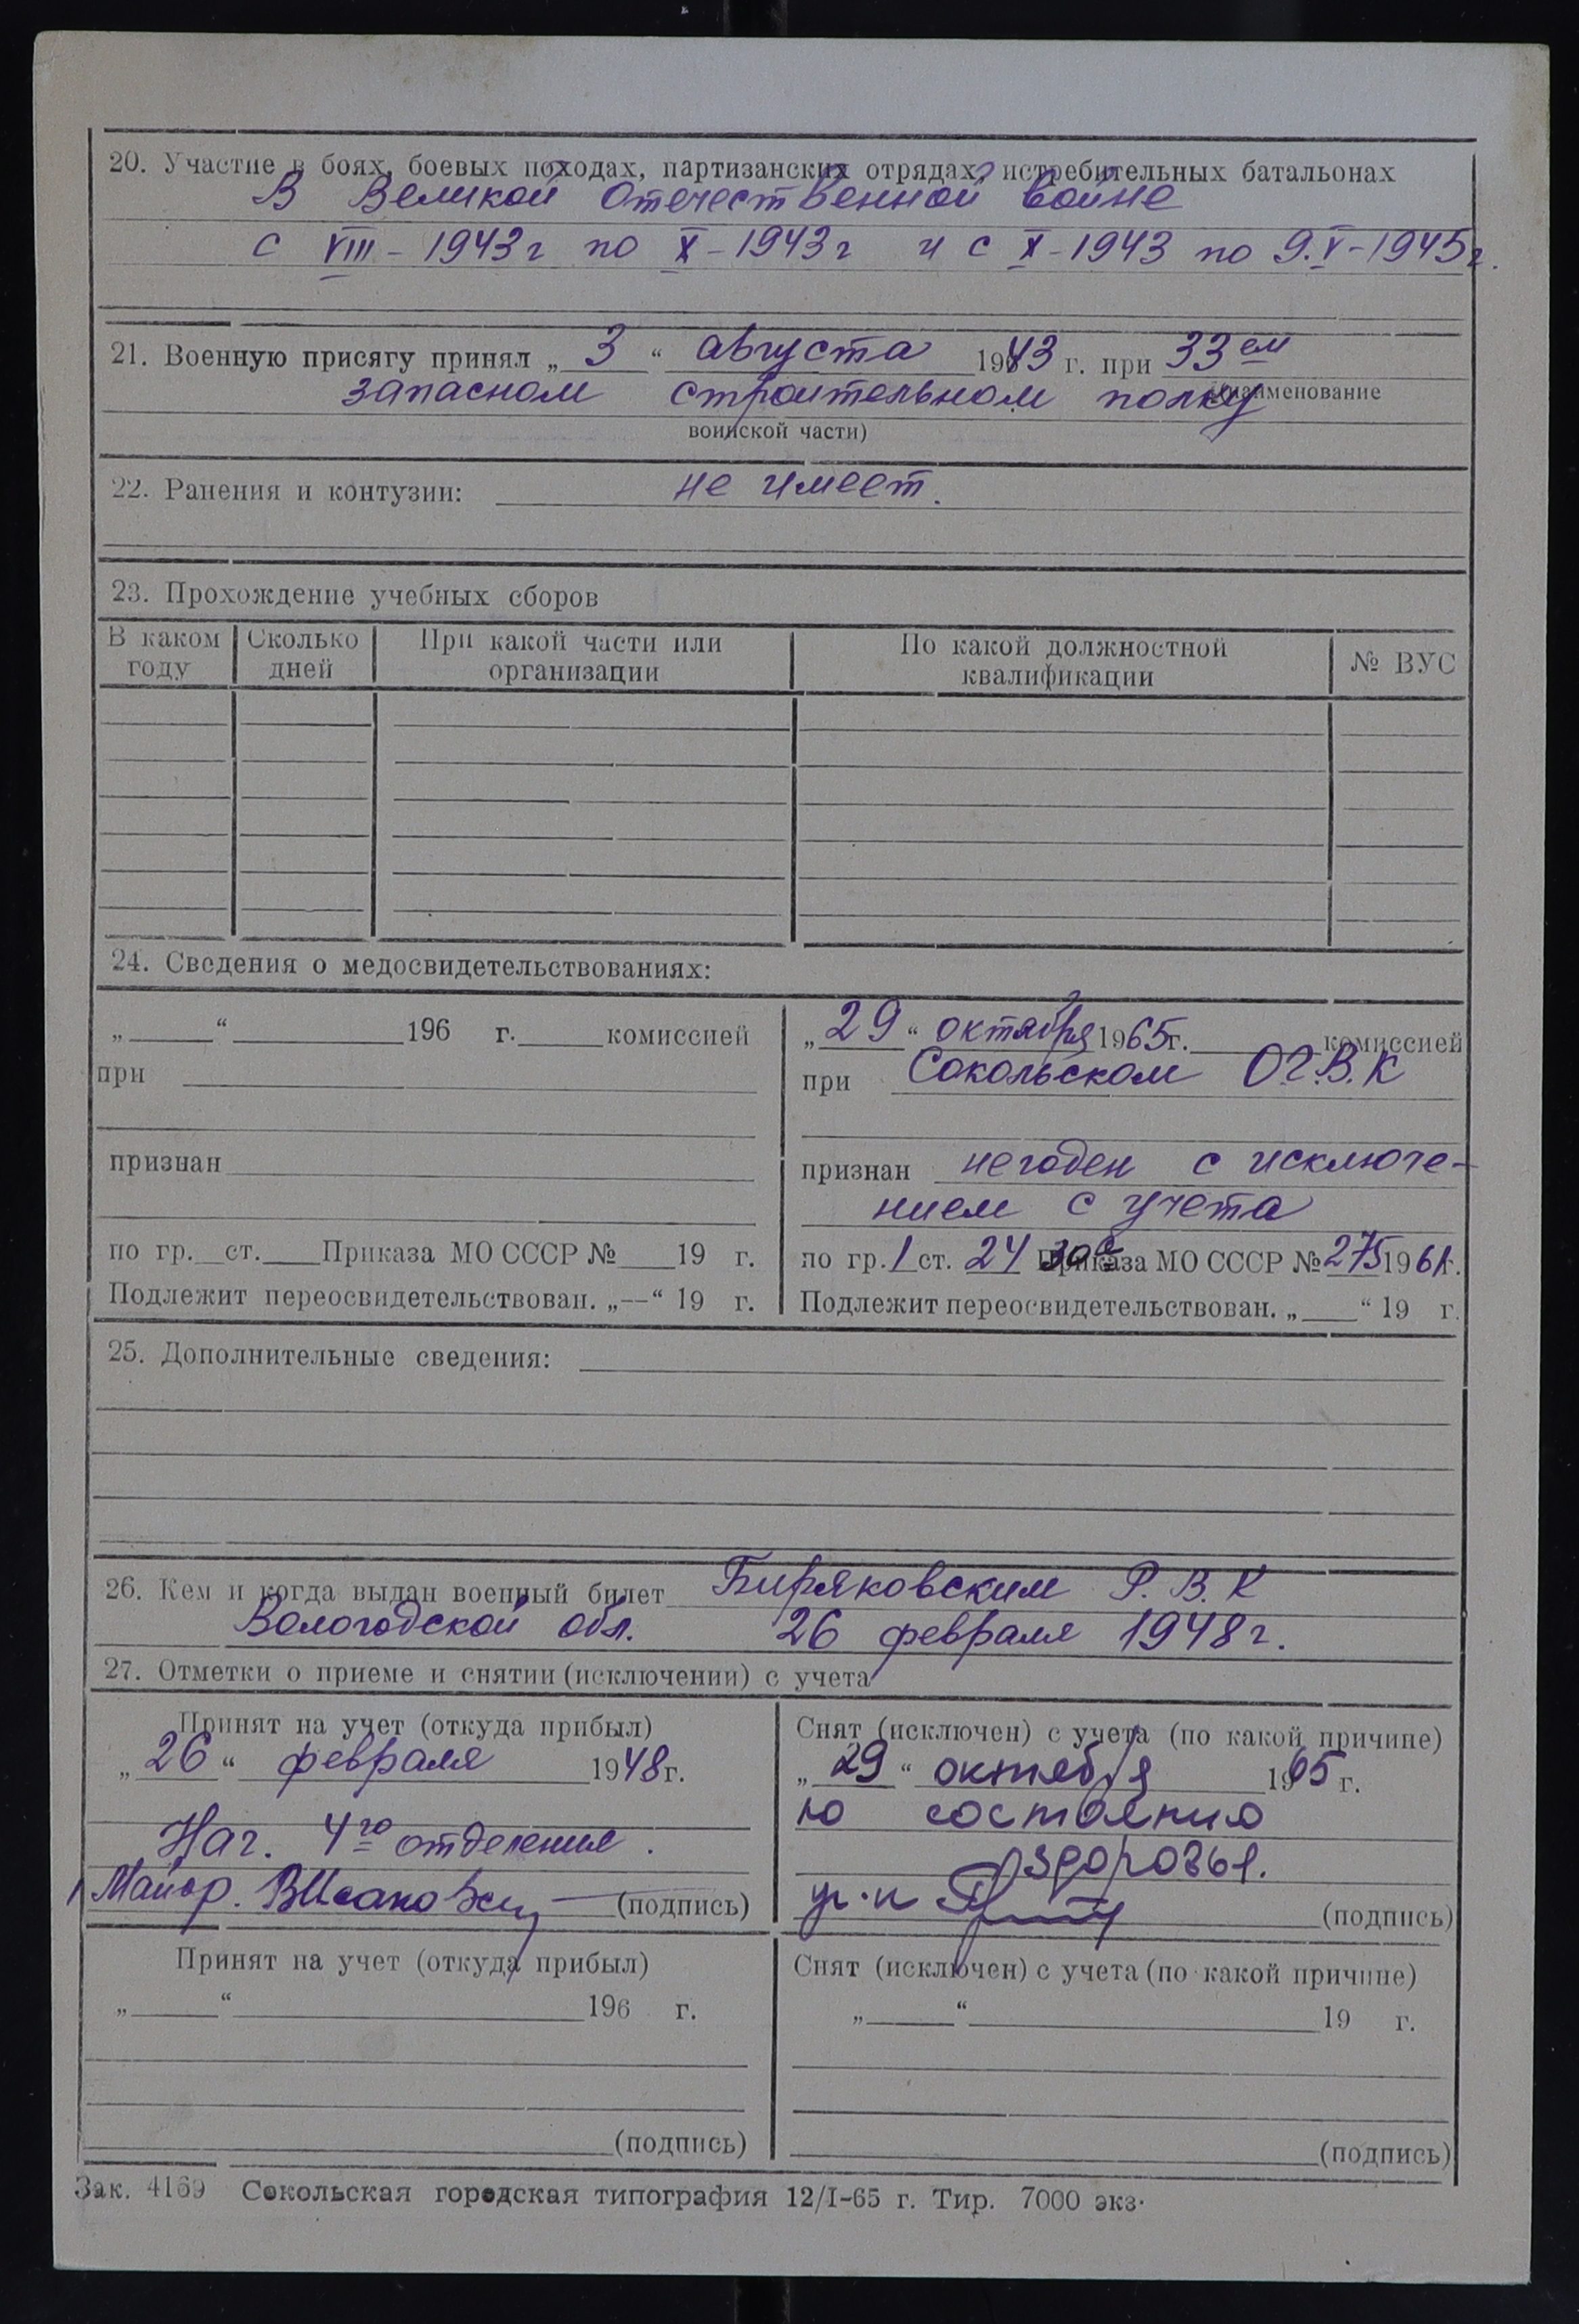 20. Участие в боях, боевых походах, партизанских отрядах, истребительных батальонах
В Великой Отечественной войне
с VIII - 1943 г по X - 1943 г и с X - 1943 по 9.V - 1945 г.
21. Военную присягу принял „ 3 “ августа 1943 г. при 33ем
запасном строительном полку (наименование
воинской части)
22. Ранения и контузии: не имеет.
23. Прохождение учебных сборов
В каком году | Сколько дней | При какой части или организации | По какой должностной квалификации | № ВУС
24. Сведения о медосвидетельствованиях:
„ “ 196 г. комиссией
при
признан
по гр. ст. Приказа МО СССР № 19 г.
Подлежит переосвидетельствован. „—“ 19 г.
„ 29 “ октября 1965 г. комиссией
при Сокольском ОГ.В.К
признан негоден с исключе-
нием с учета
по гр. 1 ст. 24 30а Приказа МО СССР № 275 1961 г.
Подлежит переосвидетельствован. „ “ 19 г.
25. Дополнительные сведения:
26. Кем и когда выдан военный билет Биряковским Р.В.К
Вологодской обл. 26 февраля 1948 г.
27. Отметки о приеме и снятии (исключении) с учета
Принят на учет (откуда прибыл)
„ 26 “ февраля 1948 г.
Нач. 4го отделения.
Майор. (подпись)
Снят (исключен) с учета (по какой причине)
„ 29 “ октября 1965 г.
по состоянию
здоровья.
(подпись)
Принят на учет (откуда прибыл)
„ “ 196 г.
(подпись)
Снят (исключен) с учета (по какой причине)
„ “ 19 г.
(подпись)
Зак. 4169 Сокольская городская типография 12/I-65 г. Тир. 7000 экз.